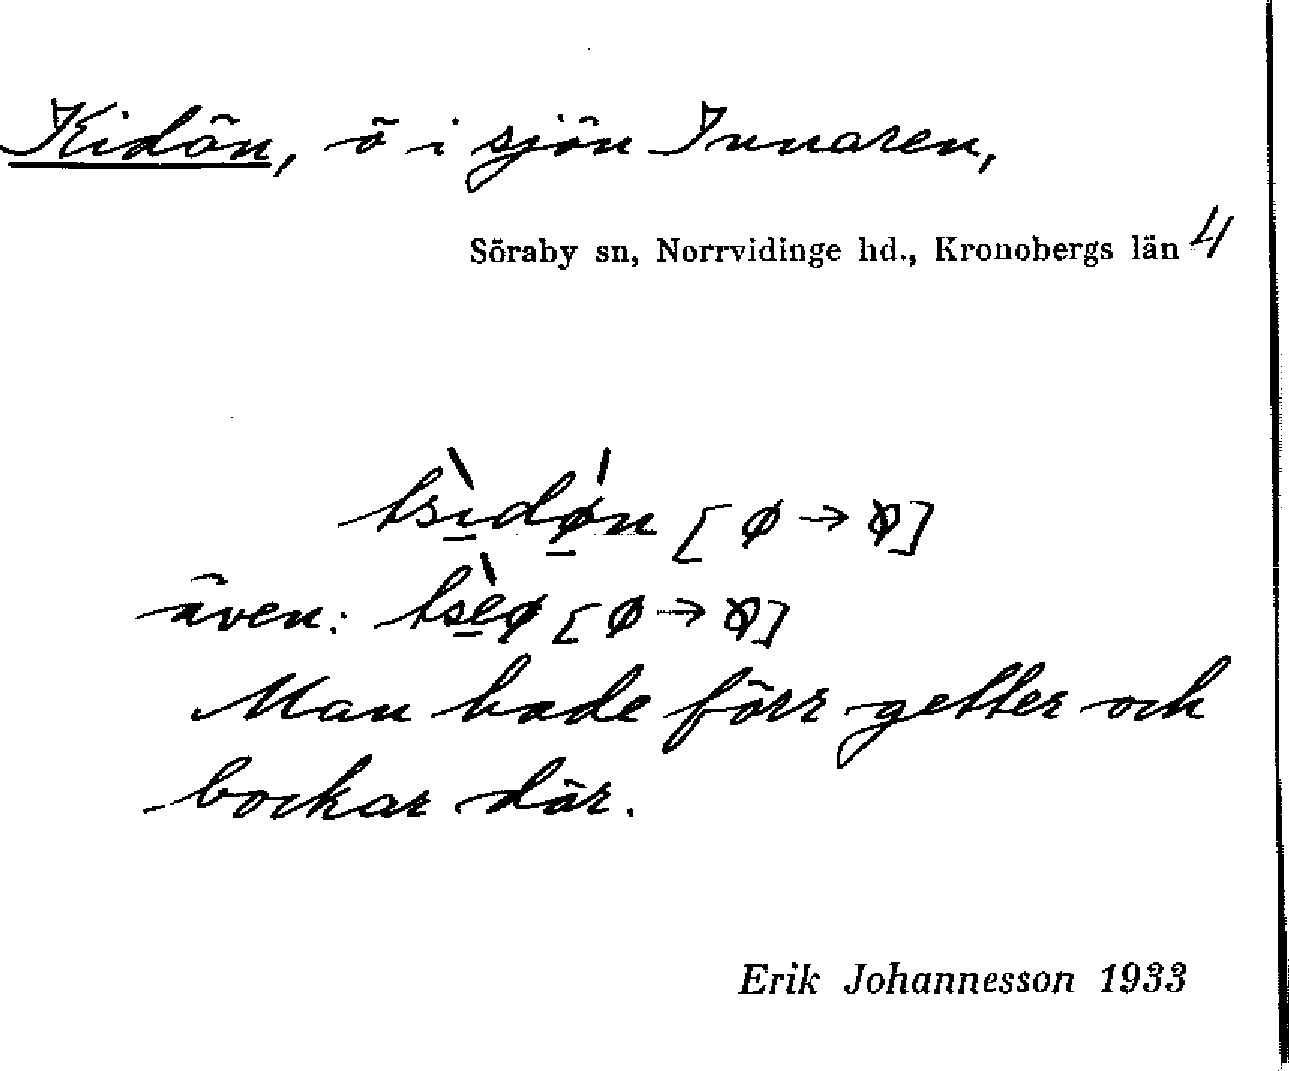 Kidön, ö i sjön Innaren,
Söraby sn, Norrvidinge hd., Kronobergs län 4
tsı̀dǿn [ø → ꝋ]
även: tsèø [ø → ꝋ]
Man hade förr getter och
bockar där.
Erik Johannesson 1933